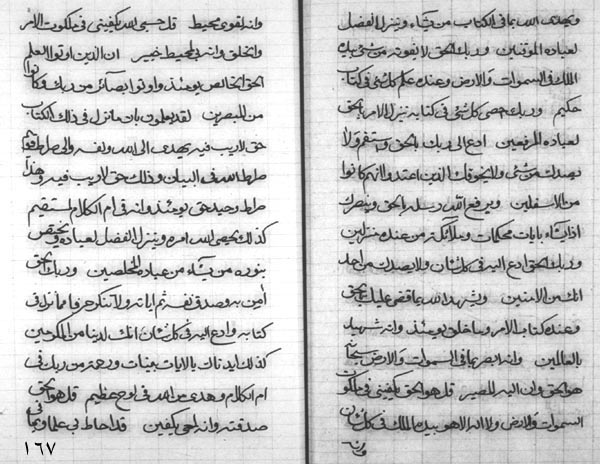 ويهدى الله بما فى الكتاب من يشاء وينزل الفضل
لعباده الموقنين وربك الحق لا يفوته من شئ بيده
الملك فى السموات والارض وعنده علم كل شئ فى كتاب
حكيم وربك احصى كل شئ فى كتابه نزل الامر بالحق
لعباده المرفعين ادع الى ربك بالحق واستقم ولا
يصدنك من شئ ولا يخوفنك الذين اعتدوا انهم كانوا
من الاسفلين ويرفع الله رسله بالحق وينصرك
اذا يشاء بايات محكمات وملائكة من عنده منزلين
وربك الحق ادع اليه فى كل شان ولا يصدنك من احد
انك من الامنين ويشهد الله بما قضى عليك بالحق
وعنده كتاب الامر وما خلق يومئذ وانه شهيد
بالعالمين وانه ابصر بما فى السموات والارض سبحانه
هو الحق وان اليه المصير قل هو الحق يكفينى فى ملكوت
السموات والارض ولا اله الا هو بيده الملك فى كل شان
وانه
وانه لقوى محيط قل حسبى الله يكفينى فى ملكوت الامر
والخلق وانه بى لمحيط خبير ان الذين اوتوا العلم
الحق الخالص يومئذ واوتوا بصائر من ربك وكانوا
من المبصرين لقد يعلمون بان ما نزل فى ذلك الكتاب
حق لا ريب فيه يهدى الى الله ولقسه والى صراط قويم
صراط الله فى البيان وذلك حق لا ريب فيه وهذا
صراط وحيد حق يومئذ وانه فى ام الكلام لمستقيم
كذلك يحيى الله امره وينزل الفضل لعباده ويختص
بنوره من يشاء من عباده المخلصين وربك الحق
امن به وصدق نفسه ثم اياته ولا تنكر حرفا مما نزل فى
كتابه وادع اليه فى كل شان انك لدينا من المكرمين
كذلك ايدناك بالايات بينات ورحمة من ربك فى
ام الكلام وهدى من الله فى لوح عظيم قل هو الحق
صدقته وانه لحى يكفين قد احاط بى علما ونجانى
١٦٧